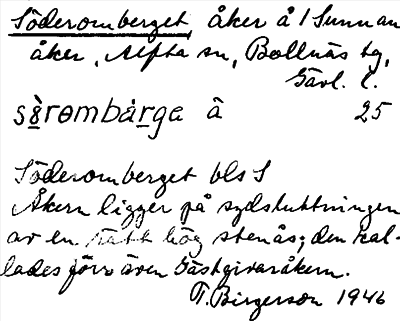 Söderomberget, åker å 1 Sunnan
åker, Alfta sn, Bollnäs tg,
Gävl. l.
sè̱rombàrga å 25
Söderomberget bls S
Åkern ligger på sydsluttningen
av en rätt hög stenås; den kal-
lades förr även Gästgivaråkern.
T. Birgerson 1946